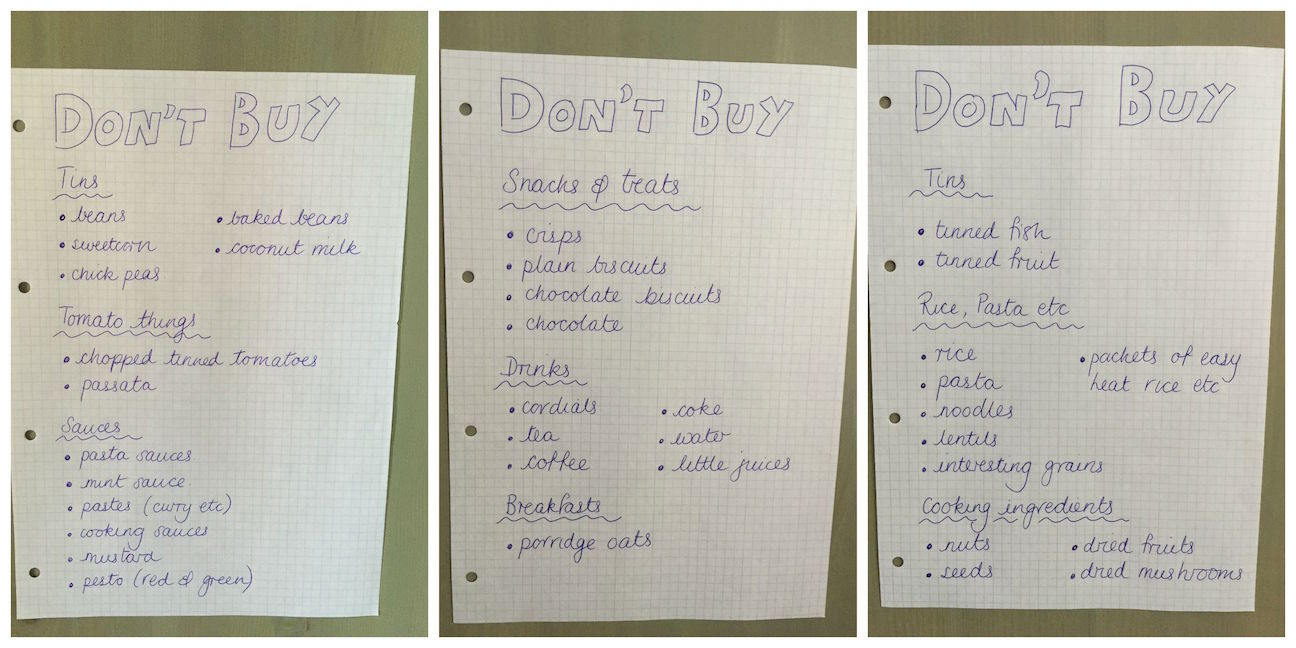 DON'T BUY
Tins
• beans
• sweetcorn
• chick peas
• baked beans
• coconut milk
Tomato things
• chopped tinned tomatoes
• passata
Sauces
• pasta sauces
• mint sauce
• pastes (curry etc)
• cooking sauces
• mustard
• pesto (red & green)
DON'T BUY
Snacks & treats
• crisps
• plain biscuits
• chocolate biscuits
• chocolate
Drinks
• cordials
• tea
• coffee
• coke
• water
• little juices
Breakfasts
• porridge oats
DON'T BUY
Tins
• tinned fish
• tinned fruit
Rice, Pasta etc
• rice
• pasta
• noodles
• lentils
• interesting grains
• packets of easy
heat rice etc
Cooking ingredients
• nuts
• seeds
• dried fruits
• dried mushrooms